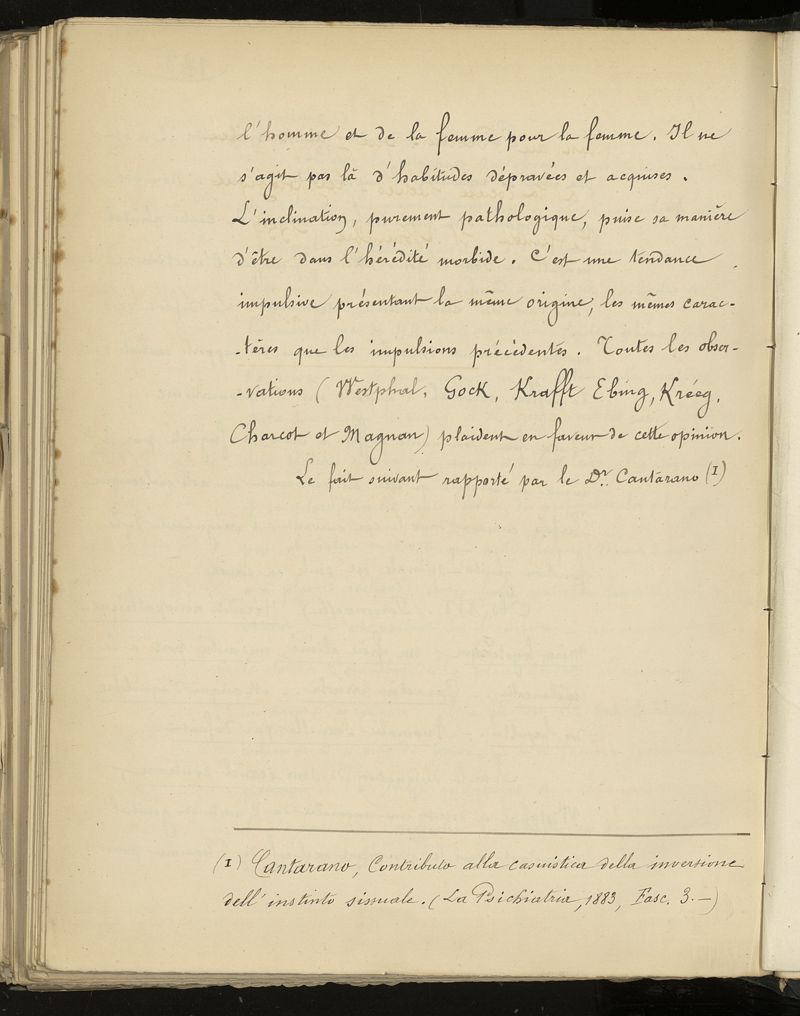 l'homme et de la femme pour la femme. Il ne
s'agit pas là d'habitudes dépravées et acquises.
L'inclination, purement pathologique, puise sa manière
d'être dans l'hérédité morbide. C'est une tendance
impulsive présentant la même origine, les mêmes carac-
-tères que les impulsions précédentes. Toutes les obser-
-vations (Westphal, Gock, Krafft Ebing, Kréeg,
Charcot et Magnan) plaident en faveur de cette opinion.
Le fait suivant rapporté par le Dr. Cantarano (I)
(I) Cantarano, Contributo alla casuistica della inversione
dell'instinto sissuale. (La Psichiatria, 1883, Fasc. 3.—)